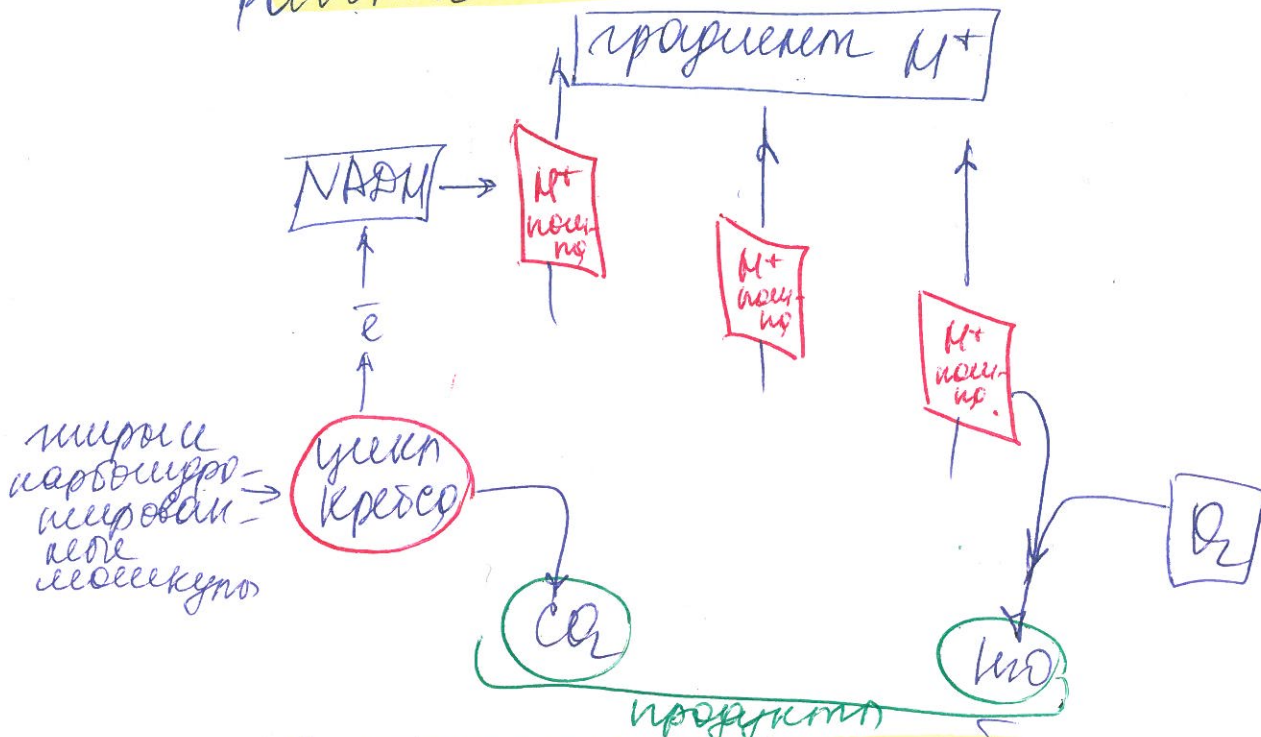 градиент H⁺
NADH
H⁺
пом-
па
H⁺
пом-
па
H⁺
пом-
па.
ē
жиры и
карбогидро-
жирован-
ные
молекулы
цикл
Кребса
O₂
CO₂
H₂O
продукты